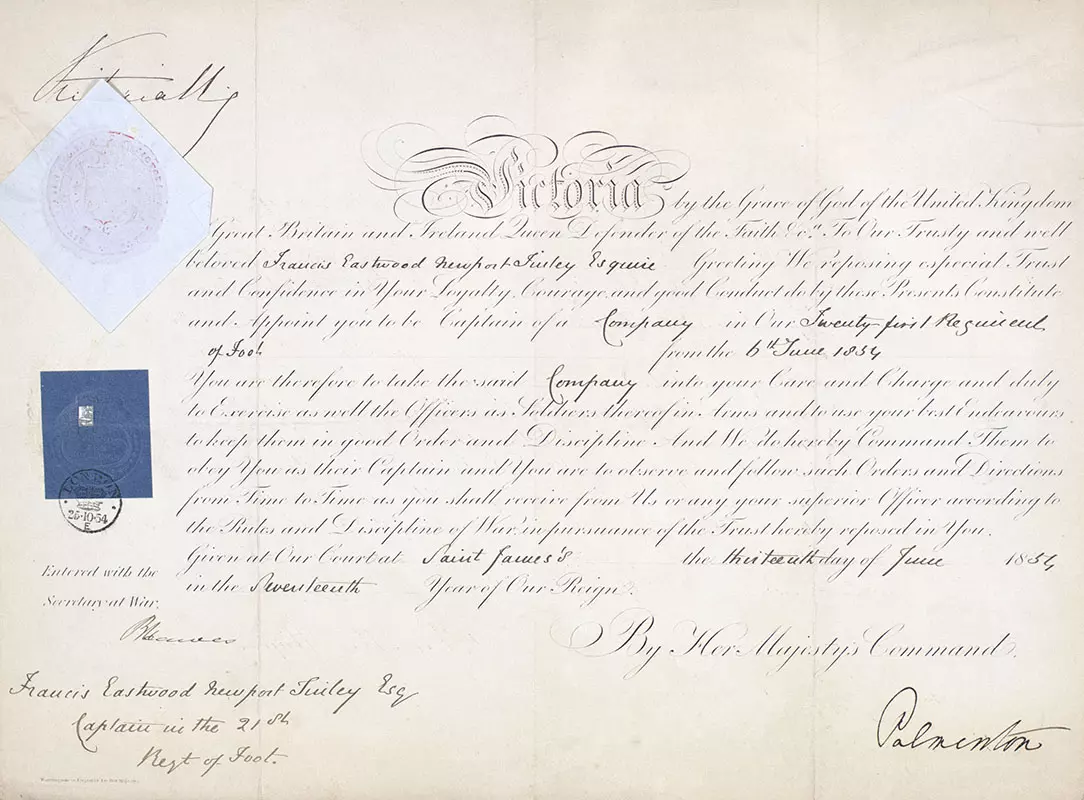 Victoria R
Victoria by the Grace of God of the United Kingdom
Great Britain and Ireland Queen Defender of the Faith &c.ª To Our Trusty and well
beloved Francis Eastwood Newport Tinley Esquire Greeting We reposing especial Trust
and Confidence in Your Loyalty, Courage, and good Conduct do by these Presents Constitute
and Appoint you to be Captain of a Company in Our Twenty first Regiment
of Foot from the 6th June 1854
You are therefore to take the said Company into your Care and Charge and duty
to Exercise as well the Officers as Soldiers thereof in Arms and to use your best Endeavours
to keep them in good Order and Discipline And We do hereby Command Them to
obey You as their Captain and You are to observe and follow such Orders and Directions
from Time to Time as you shall receive from Us or any your Superior Officer according to
the Rules and Discipline of War in pursuance of the Trust hereby reposed in You.
Given at Our Court at Saint James's the thirteenth day of June 1854
in the Seventeenth Year of Our Reign.
LONDON
25·10·54
E
Entered with the
Secretary at War.
By Her Majesty's Command.
Francis Eastwood Newport Tinley Esq
Captain in the 21st
Regt of Foot.
Palmerston